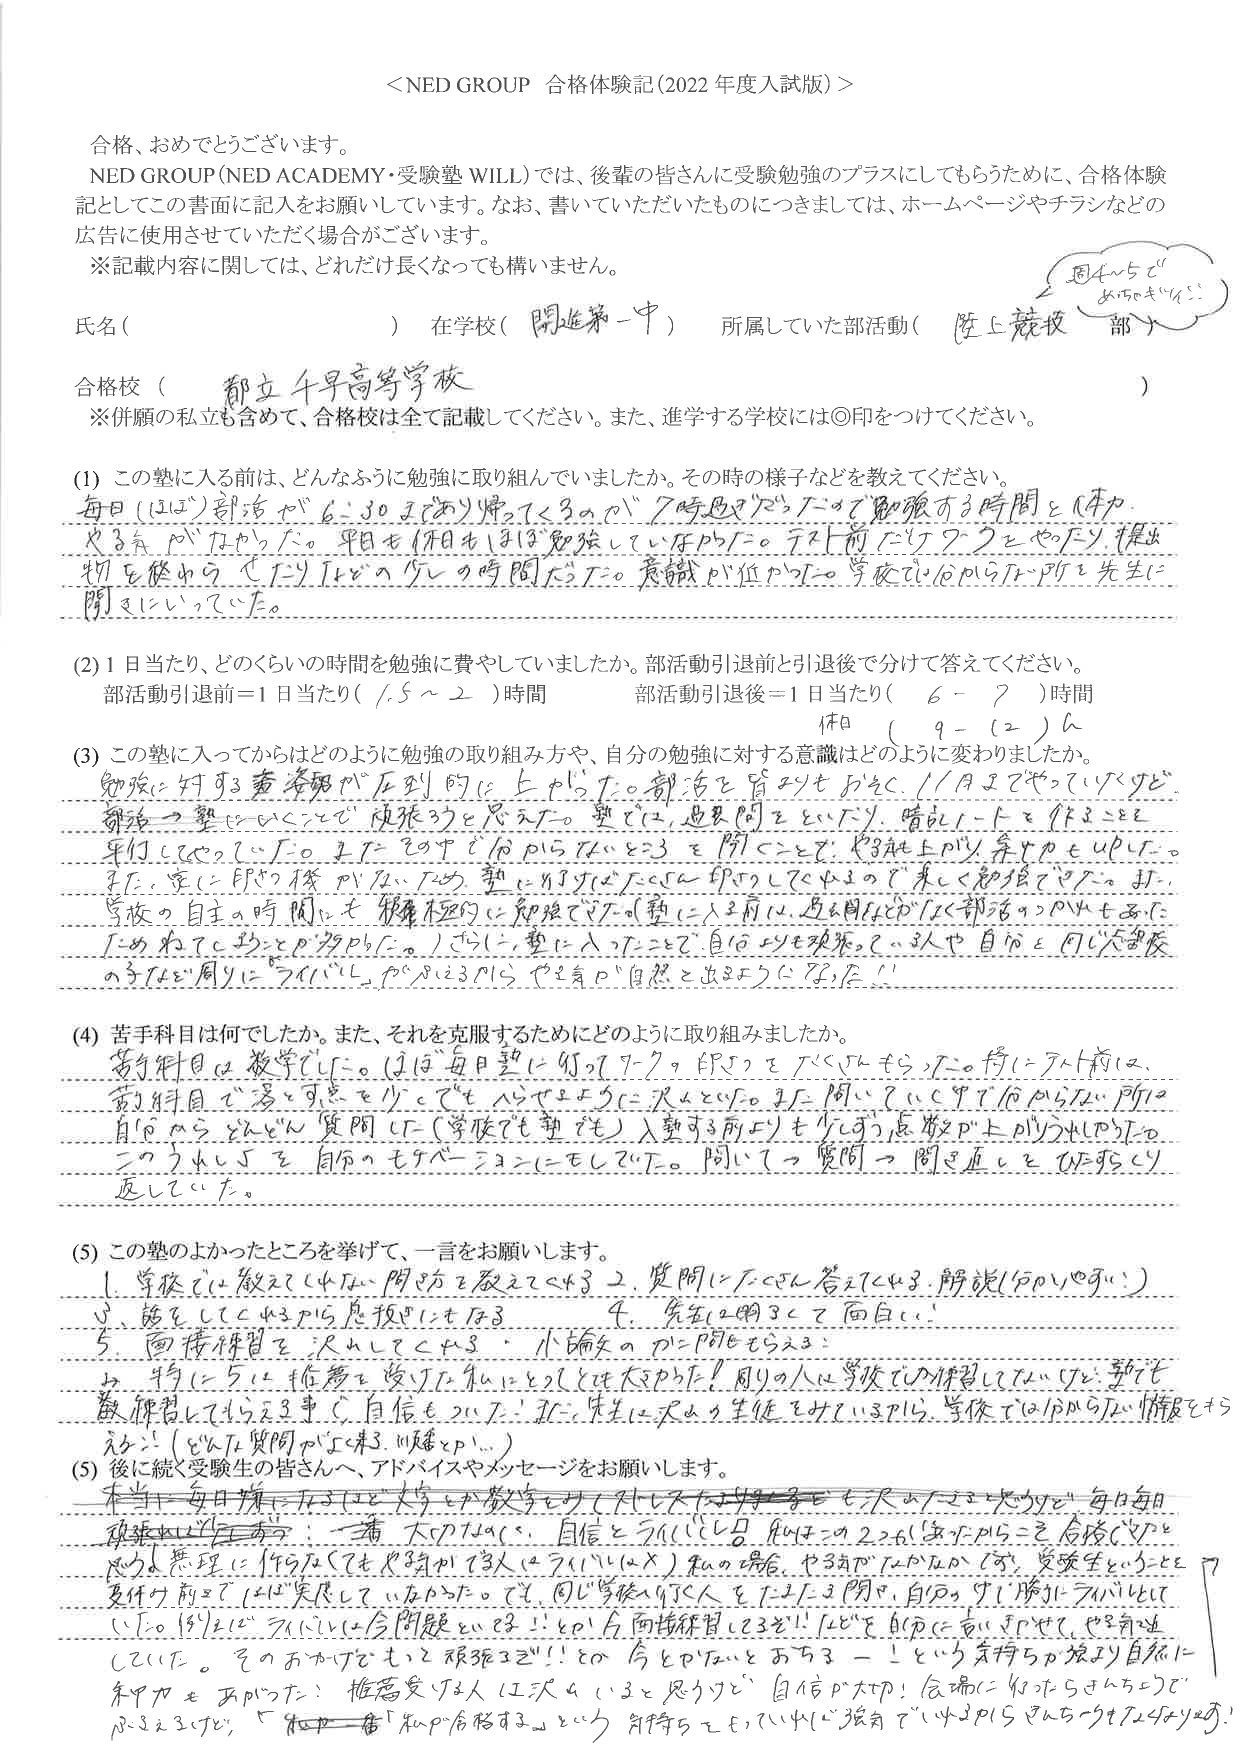 ＜NED GROUP 合格体験記（2022 年度入試版）＞
合格、おめでとうございます。
NED GROUP（NED ACADEMY・受験塾 WILL）では、後輩の皆さんに受験勉強のプラスにしてもらうために、合格体験
記としてこの書面に記入をお願いしています。なお、書いていただいたものにつきましては、ホームページやチラシなどの
広告に使用させていただく場合がございます。
※記載内容に関しては、どれだけ長くなっても構いません。
週4〜5で
めっちゃキツイ!!
氏名（ ） 在学校（ 開進第一中 ） 所属していた部活動（ 陸上競技 部 ）
合格校 （ 都立千早高等学校 ）
※併願の私立も含めて、合格校は全て記載してください。また、進学する学校には◎印をつけてください。
(1) この塾に入る前は、どんなふうに勉強に取り組んでいましたか。その時の様子などを教えてください。
毎日（ほぼ）部活が6:30まであり帰ってくるのが7時過ぎだったので勉強する時間と体力
やる気がなかった。平日も休日もほぼ勉強していなかった。テスト前だけワークをやったり、提出
物を終わらせたりなどの少しの時間だった。意識が低かった。学校では分からない所を先生に
聞きにいっていた。
(2) 1 日当たり、どのくらいの時間を勉強に費やしていましたか。部活動引退前と引退後で分けて答えてください。
部活動引退前＝1 日当たり（ 1.5 〜 2 ）時間 部活動引退後＝1 日当たり（ 6 - 7 ）時間
休日 （ 9 - 12 ）h
(3) この塾に入ってからはどのように勉強の取り組み方や、自分の勉強に対する意識はどのように変わりましたか。
勉強に対する姿勢が圧倒的に上がった。部活を皆よりもおそく、11月までやっていたけど
部活→塾にいくことで頑張ろうと思えた。塾では、過去問をといたり、暗記ノートを作ることを
平行してやっていた。またその中で分からないところを聞くことで、やる気も上がり、集中力もUPした。
また、家に印さつ機がないため、塾に行けばたくさん印さつしてくれるので楽しく勉強できた。また、
学校の自主の時間にも積極的に勉強できた。（塾に入る前は、過去問などがなく部活のつかれもあった
ためねてしまうことが多かった。）さらに、塾に入ったことで、自分よりも頑張っている人や自分と同じ志望校
の子など周りに「ライバル」がふえるからやる気が自然と出るようになった!!
(4) 苦手科目は何でしたか。また、それを克服するためにどのように取り組みましたか。
苦手科目は数学でした。ほぼ毎日塾に行ってワークの印さつをたくさんもらった。特にテスト前は、
苦手科目で落とす点を少しでもへらせるように沢山といた。また問いていく中で分からない所は
自分からどんどん質問した（学校でも塾でも）入塾する前よりも少しずつ点数が上がりうれしかった。
このうれしさを自分のモチベーションにもしていた。問いて→質問→問き直しをひたすらくり
返していた。
(5) この塾のよかったところを挙げて、一言をお願いします。
1. 学校では教えてくれない問き方を教えてくれる 2. 質問にたくさん答えてくれる.解説（分かりやすい!）
3. 話をしてくれるから息抜きにもなる 4. 先生は明るくて面白い!
5. 面接練習を沢山してくれる・小論文の 問をもらえる!
特に5は推薦を受けた私にとってとても大きかった! 周りの人は学校でしか練習してないけど、塾でも
練習してもらえる事で、自信もついた! また、先生は沢山の生徒をみているから、学校では分からない情報をもら
える!!（どんな質問がよく来る、順番とか…）
(5) 後に続く受験生の皆さんへ、アドバイスやメッセージをお願いします。
一番大切なのは、自信とライバル!! 私はこの2つがあったからこそ合格できたと
思うよ 無理に作らなくてもやる気がでる人はライバルは×）私の場合、やる気がなかなかでず、受験生ということを
夏休み前までほぼ実感していなかった。でも、同じ学校へ行く人をたまたま聞き、自分の中で勝手にライバルとして
いた。例えばライバルは今問題といてる!!とか今面接練習してるぞ!!などを自分に言いきかせて、やる気
していた。そのおかげでもっと頑張るぞ!!とか今とかないとおちるー!という気持ちが強まり自然に
集中力もあがった! 推薦受ける人は沢山いると思うけど、自信が大切! 会場に行ったらきんちょうで
ふるえるけど、「私が合格する」という気持ちをもっていれば強気でいれるからきんちょうもなくなります!